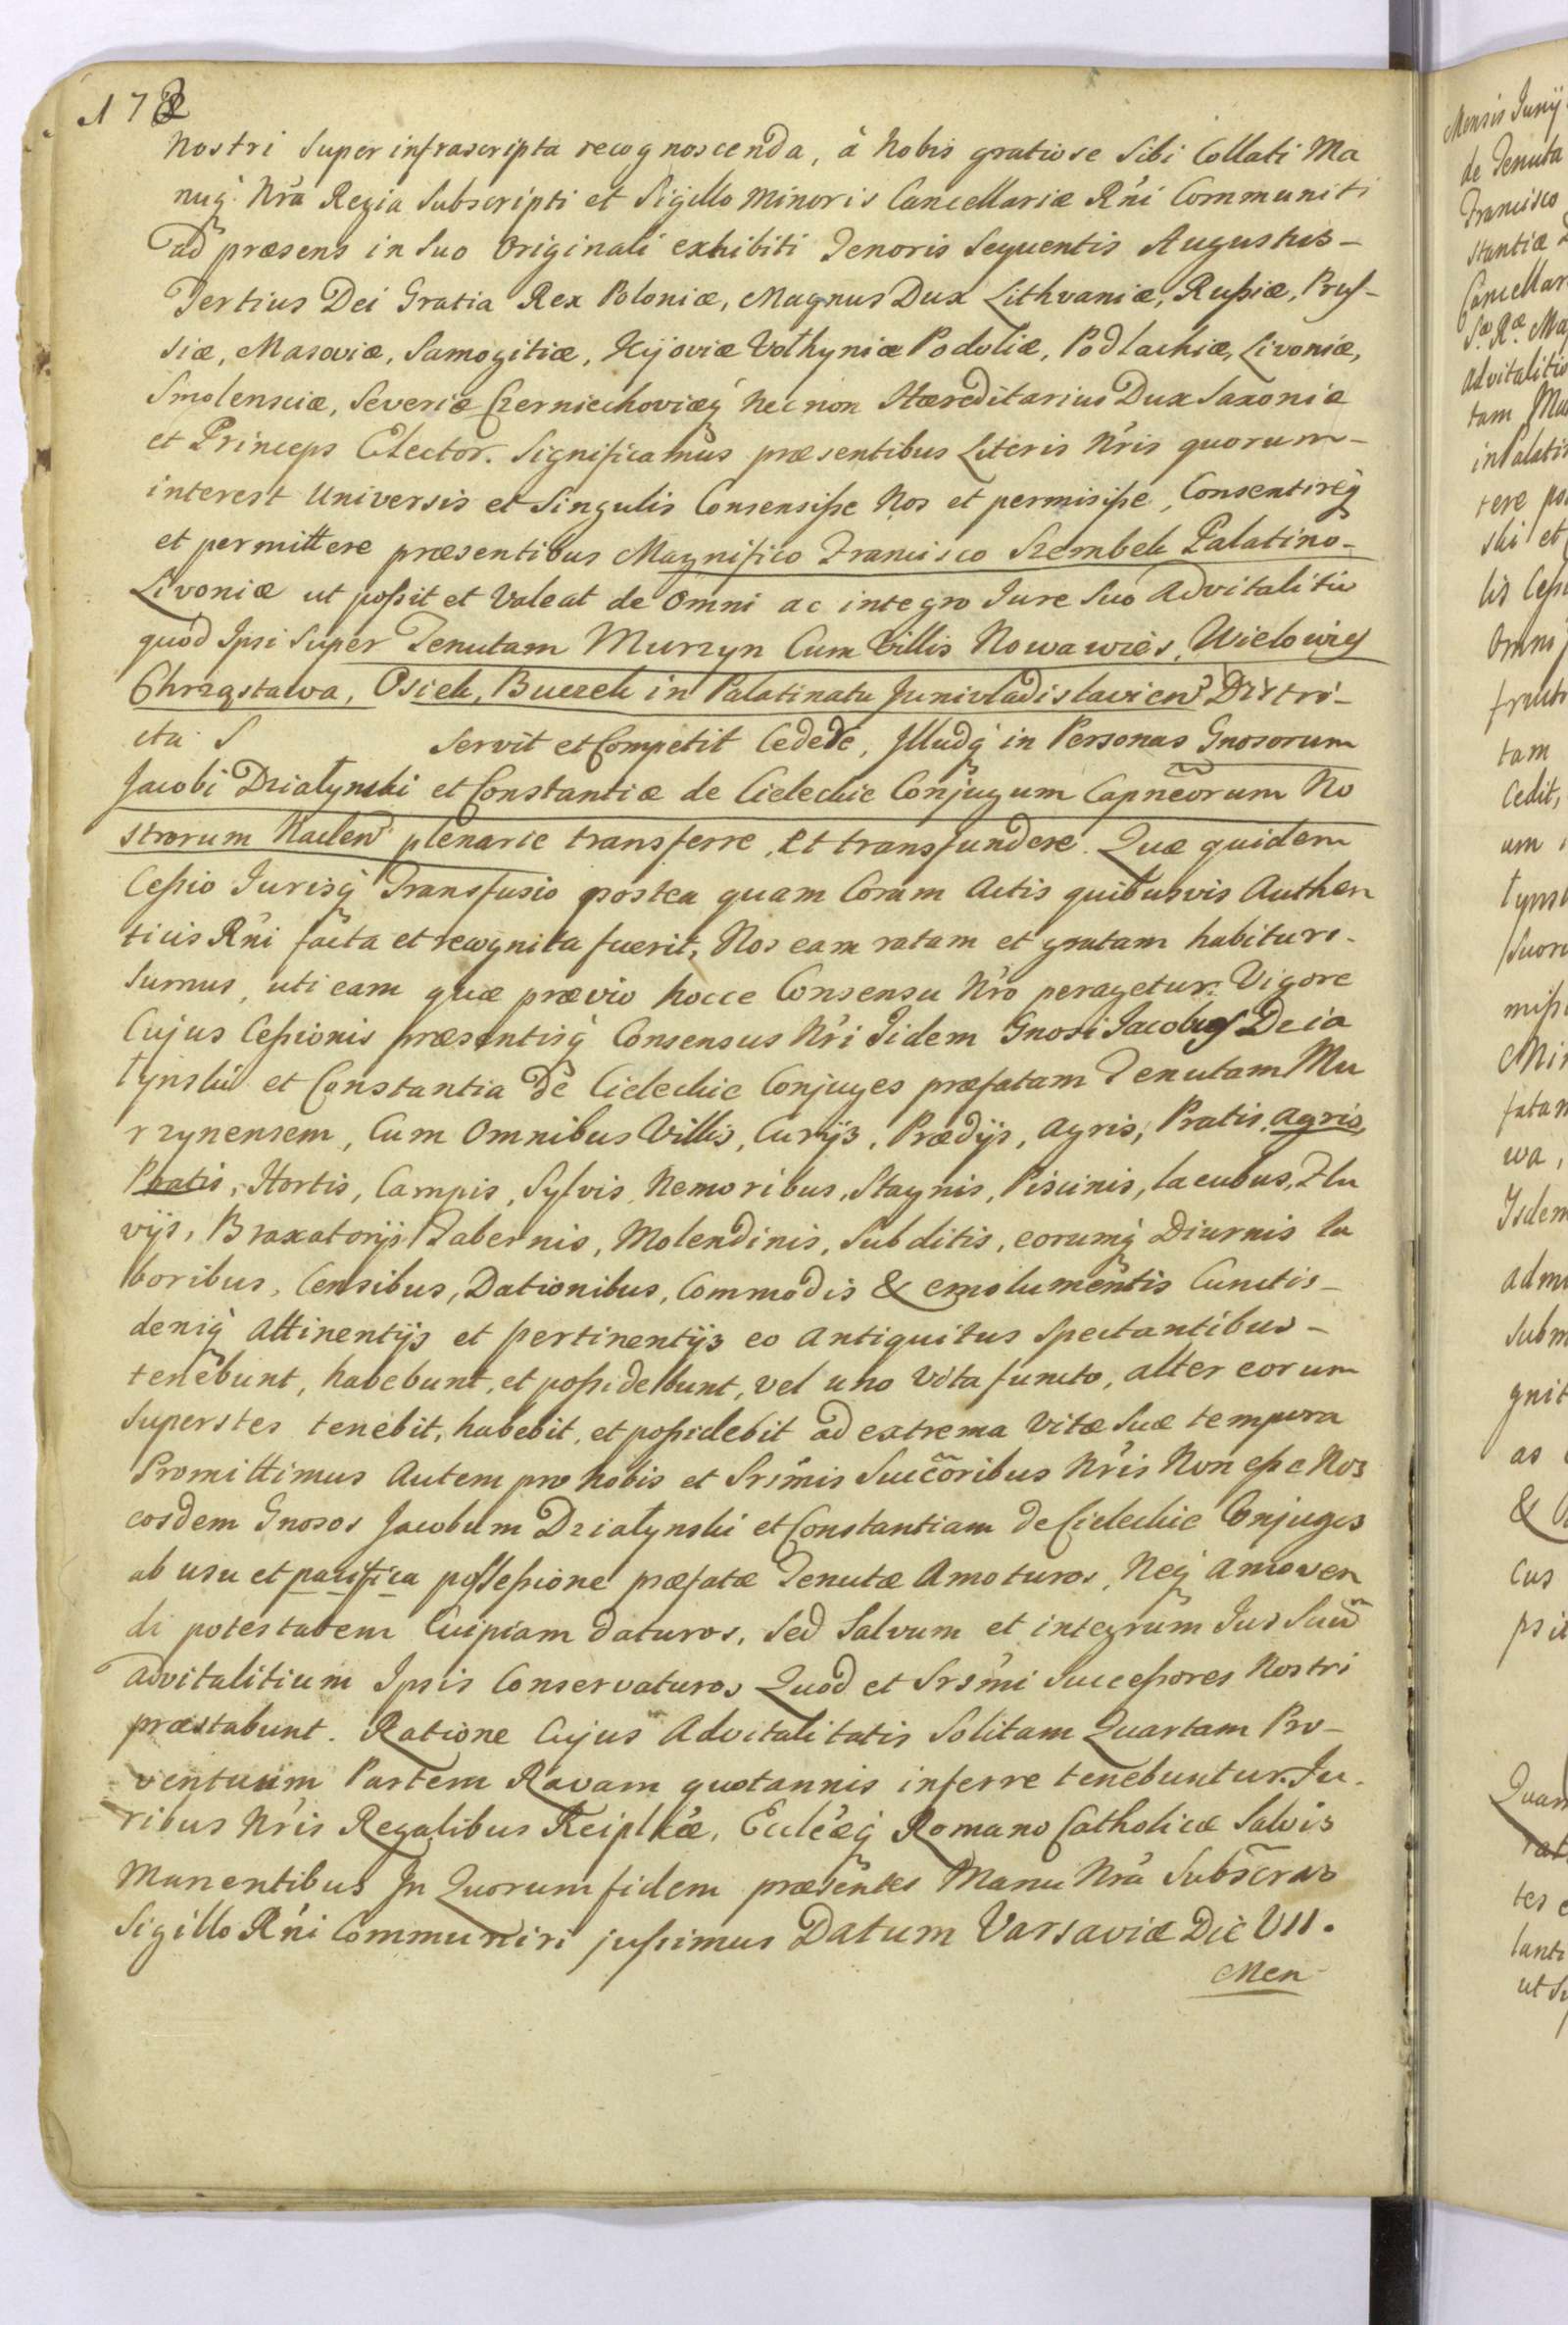 178
Nostri Super infrascripta recognoscenda, à Nobis gratiose Sibi Collati Ma
nuq́ Nrã Regia Subscripti et Sigillo Minoris Cancellariæ Rńi Communiti
ad præsens in Suo Originali exhibiti Tenoris Sequentis Augustus-
Tertius Dei Gratia Rex Poloniæ, Magnus Dux Lithvaniæ, Rußiæ, Pruſ-
siæ, Masoviæ, Samogitiæ, Kijoviæ Volhyniæ Podoliæ, Podlachiæ, Livoniæ,
Smolensciæ, Severiæ Czerniechoviæq́ Nec non Hæreditarius Dux Saxoniæ
et Princeps Elector. Significamus præsentibus Literis Nŕis quorum-
interest Universis et Singulis Consensiße Nos et permisiße, Consentireq́
et permittere præsentibus Magnifico Francisco Szembek Palatino-
Livoniæ ut poßit et Valeat de Omni ac integro Jure Suo Advitalitio
quod Ipsi Super Tenutam Murzyn Cum Villis Nowawies, Wielowieś
Chrząstawa, Osiek, Buczek in Palatinatu Junivladislavien Distri-
ctu S Servit et Competit Cedere, Illudq́ in Personas Gnosorum
Jacobi Działynski et Constantiæ de Cielechie Conjugum Capneorum No
strorum Naclen plenarie transferre, et transfundere. Quæ quidem
Ceßio Jurisq́ Transfusio postea quam Coram Actis quibusvis Authen
ticis Rńi facta et recognita fuerit, Nos eam ratam et gratam habituri-
Sumus, uti eam quæ prævio hocce Consensu Nŕo peragetur. Vigore
Cujus Ceßionis præsentisq́ Consensus Nŕi Iidem Gnosi Jacobus Dzia
łynski et Constantia de Cielechie Conjuges præfatam Tenutam Mu
rzynensem, Cum Omnibus Villis, Curijs, Prædijs, Agris, Pratis, agris,
Pratis, Hortis, Campis, Sylvis, Nemoribus, Stagnis, Piscinis, lacubus, Flu
vijs, Braxatorijs Tabernis, Molendinis, Subditis, eorumq́ Diurnis la
boribus, Censibus, Dationibus, Commodis & emolumentis Cunctis-
deniq́ Attinentijs et pertinentijs eo Antiquitus Spectantibus-
tenebunt, habebunt, et poßidebunt, vel uno Vita functo, alter eorum
Superstes tenebit, habebit, et poßidebit ad extrema Vitæ Suæ tempora
Promittimus Autem pro Nobis et Srsm̃is Succoribus Nŕis Non eße Nos
eosdem Gnosos Jacobum Działynski et Constantiam de Cielechie Conjuges
ab usu et pacifica poſſeßione præfatæ Tenutæ Amoturos, Neq́ Amoven
di potestatem Cuipiam daturos, Sed Salvum et integrum Jus Suũ
advitalitium Ipsis Conservaturos Quod et Srsḿi Succeßores Nostri
præstabunt. Ratione Cujus Advitalitatis Solitam Quartam Pro-
ventuum Partem Ravam quotannis inferre tenebuntur. Ju-
ribus Nŕis Regalibus Reiplicæ, Eccléæq́ Romano Catholicæ Salvis
Manentibus In Quorum fidem præsentes Manu Nŕa Subscras
Sigillo Rńi Communiri jußimus Datum Varsaviæ Die VII.
Men-
Mensis Junij
de Tenuta
Francisco
stantiæ
Cancellar
Sæ. Ræ. Ma
advitalitio
tam Mu
in Palati
tere po
ski et
lis Ceß
Omni
fructi
tam
Cedit,
um
łynsk
Suor
miß
Min
fatam
wa,
Isdem
adm
Subm
gnit
as
&
cus
psit
Quam
rat
tes
lanti
ut Su